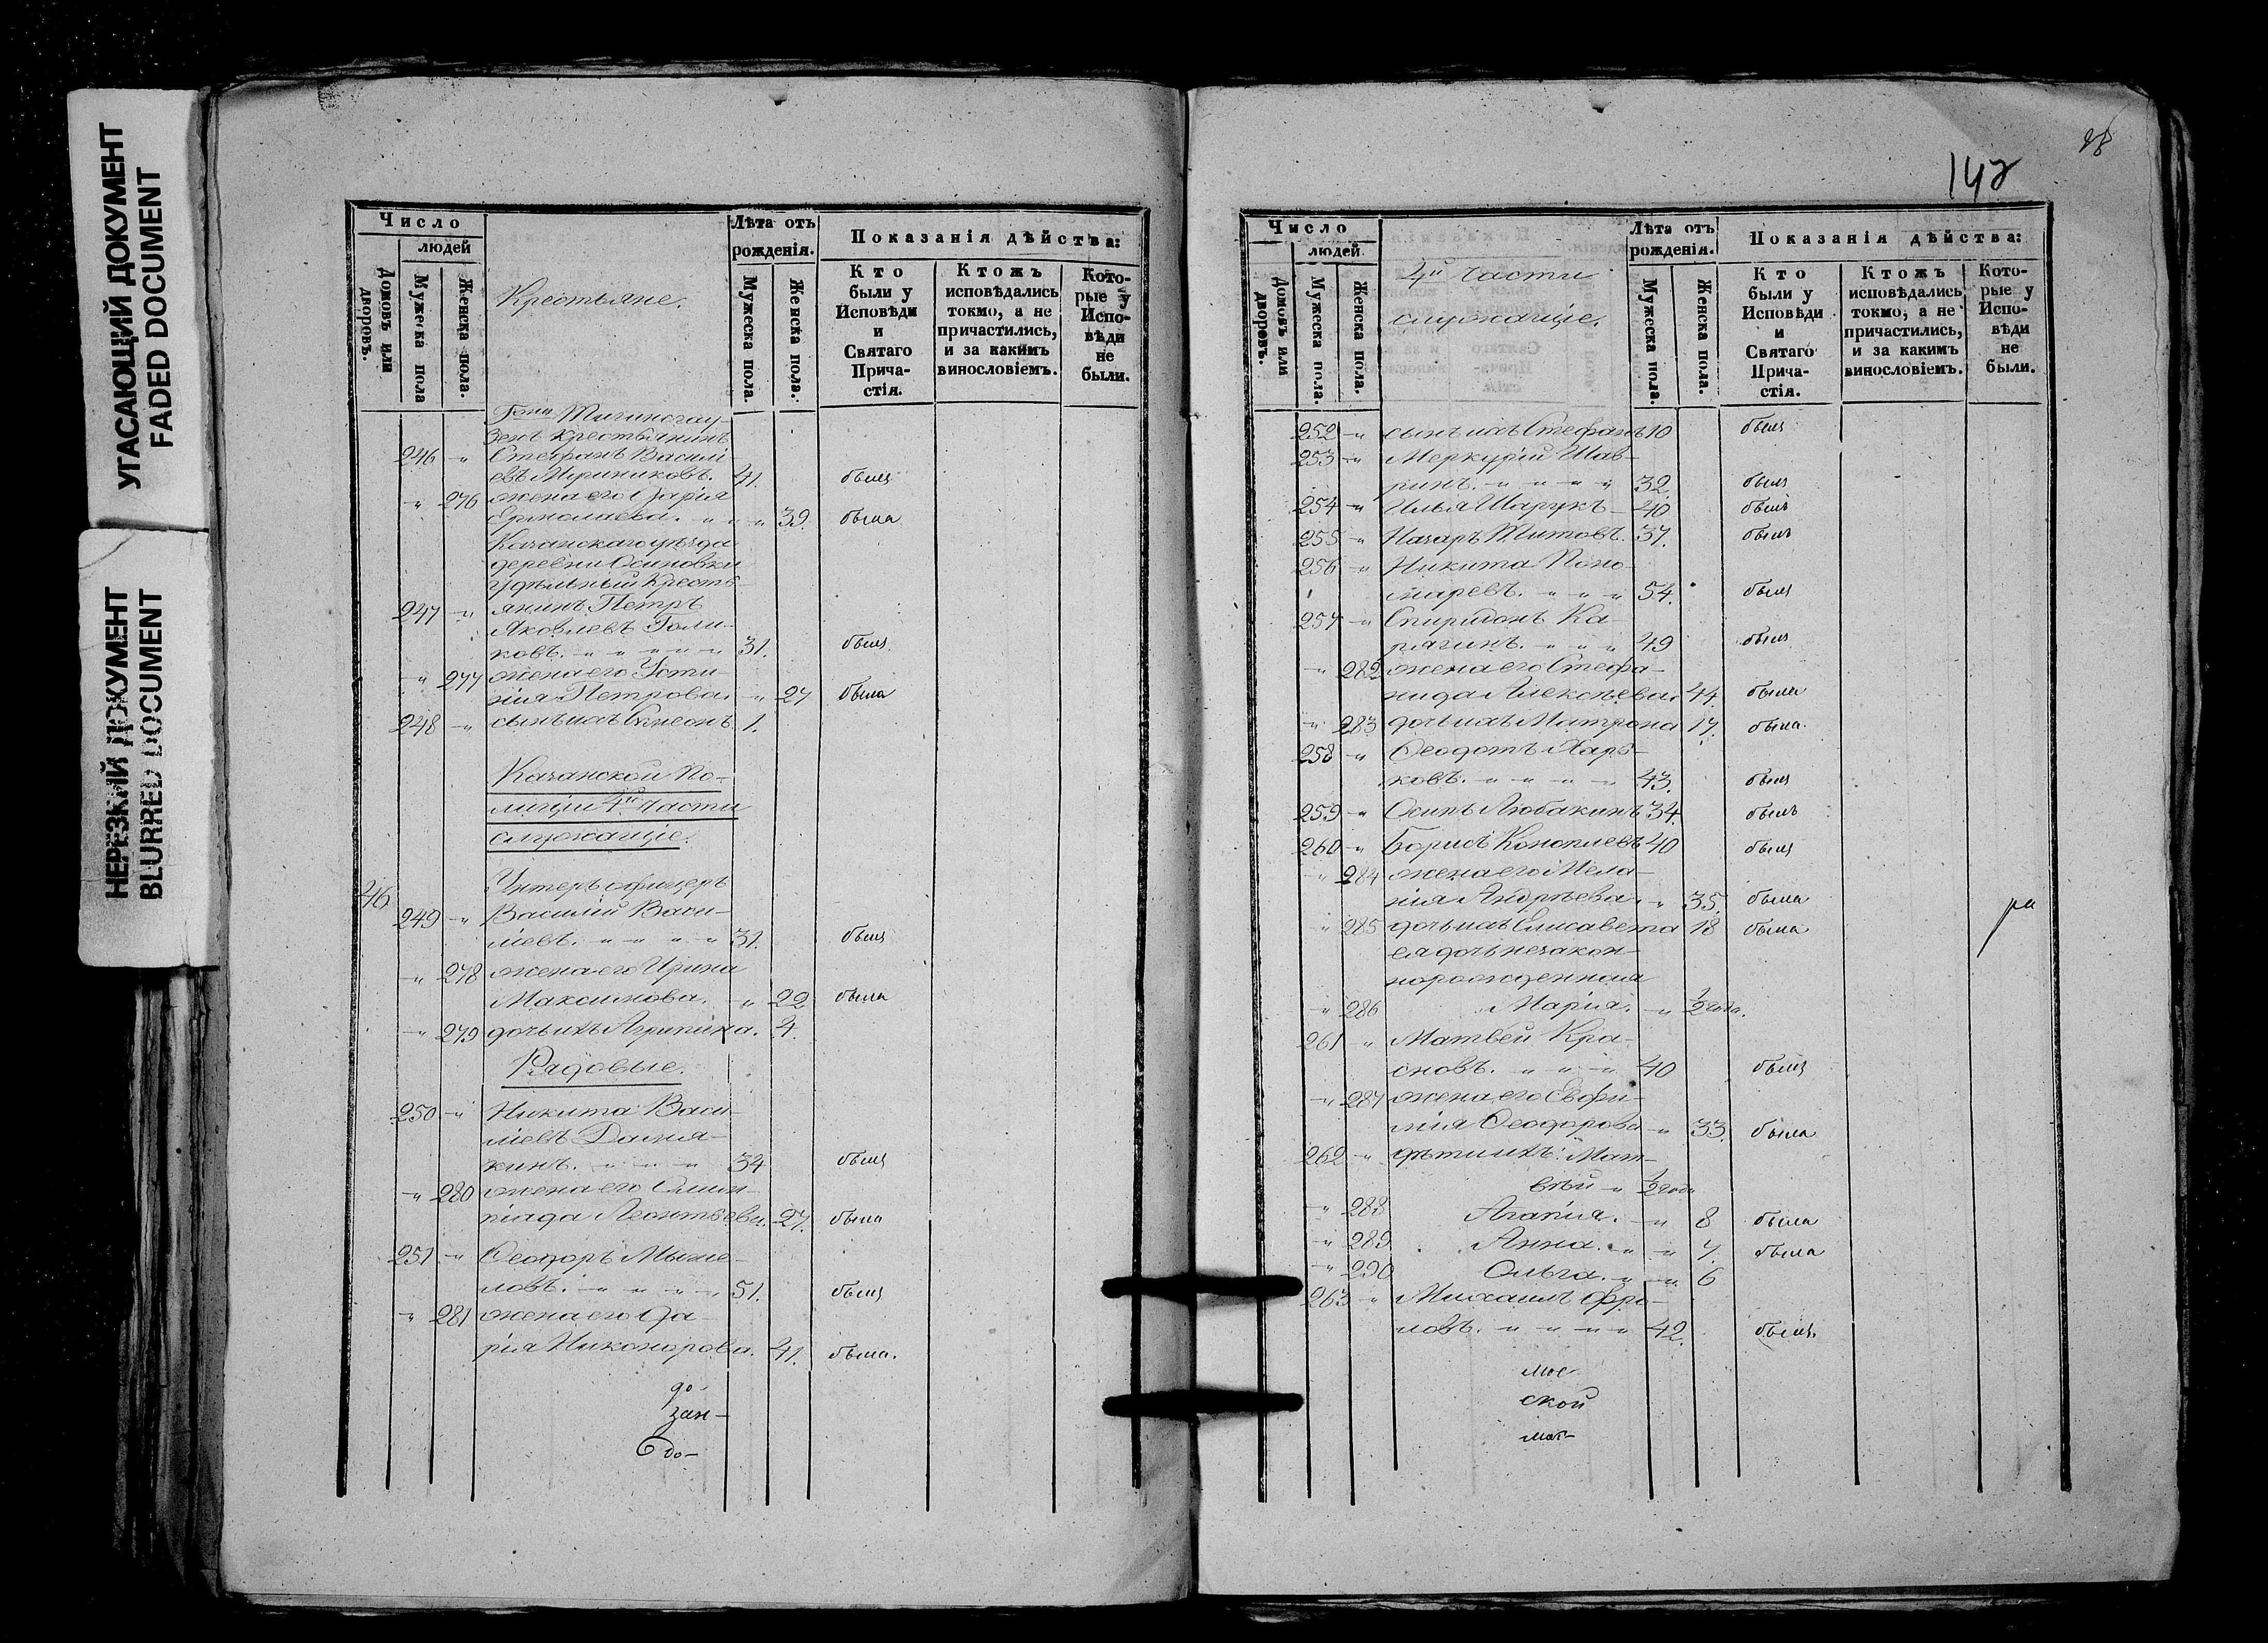 УГАСАЮЩИЙ ДОКУМЕНТ
FADED DOCUMENT
НЕРЕЗКИЙ ДОКУМЕНТ
BLURRED DOCUMENT
Число
людей
Домовъ или дворовъ.
Мужеска пола
Женска пола.
Крестьяне.
Лѣта отъ рожденія.
Мужеска пола.
Женска пола.
Показанія дѣйства:
Кто были у Исповѣди и Святаго Прича-стія.
Ктожъ исповѣдались токмо, а не причастились, и за какимъ винословіемъ.
Кото-рые у Испо-вѣди не были.
зенъ крестьянинъ
246 " Стефанъ Василі
евъ Мушниковъ. 41. былъ
" 276 жена его Дарія
Ермолаева. " " " 39. была
Казанскаго уѣзда
деревни Осиновки
Удѣльный Кресть-
247 " янинъ Петръ
Яковлевъ Голи-
ковъ. " " " " " 31. былъ
" 277 жена его Усти-
нія Петрова. " 27 была
248 " сынъ ихъ Симеонъ 1.
Казанской По-
лиціи 4й части
служащіе.
46 Унтеръ офицеръ
249 " Василій Васи-
ліевъ. " " " " 31. былъ
" 278 жена его Ирина
Максимова. " 22 была
" 279 дочь ихъ Агрипина. 4.
Рядовые.
250 " Никита Васи-
ліевъ
кинъ. " " " 34 былъ
" 280 жена его Олим-
піада Леонтьева. 27. была
251 " Ѳеодоръ Мыше-
ловъ. " " " " 51. былъ
" 281 жена его Да-
рія Никонорова. 41. была.
до-
зан-
до-
28
142
Число
людей
Домовъ или дворовъ.
Мужеска пола.
Женска пола.
4й части
служащіе.
Лѣта отъ рожденія.
Мужеска пола.
Женска пола.
Показанія дѣйства:
Кто были у Исповѣди и Святаго Прича-стія.
Ктожъ исповѣдались токмо, а не причастились, и за какимъ винословіемъ.
Кото-рые у Испо-вѣди не были.
252 " сынъ ихъ Стефанъ 10 былъ
253 " Меркурій Шав-
ринъ. " " " " 32. былъ
254 " Илья Шарукъ 40 былъ
255 " Назаръ Титовъ. 37. былъ
256 " Никита Поно-
маревъ. " " " 54. былъ
257 " Спиридонъ Ка-
рягинъ. " " " 49 былъ
" 282 жена его Стефа-
нида Алексѣева. 44. была
" 283 дочь ихъ Матрона 17. была
258 " Ѳеодотъ Харь-
ковъ. " " " " 43. былъ
259 " Осипъ Любакинъ 34. былъ
260 " Борисъ Коноплевъ 40 былъ
" 284 жена его Мела-
нія Андрѣева. " 35. была
" 285 дочь ихъ Елисавета 18 была
ея дочь незакон-
норожденная
" 286 Марія. " 1/2 года.
261 " Матвей Кра-
сновъ. " " " 40 былъ
" 287 жена его Евфи-
мія Ѳеодорова " 33. была
262 " дѣти ихъ: Мат-
вѣй " 1/2 года
" 288 Агапія. " 8 была
" 289 Анна. " " 7. была
" 290 Ольга. " " 6
263 " Михаилъ Фро-
ловъ. " " " " 42. былъ.
ра
мос
ской
мат-